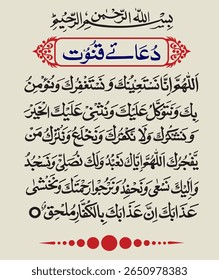 بِسْمِ اللّٰهِ الرَّحْمٰنِ الرَّحِيْمِ
دُعَائے قُنُوت
اَللّٰهُمَّ اِنَّا نَسْتَعِيْنُكَ وَنَسْتَغْفِرُكَ وَنُؤْمِنُ
بِكَ وَنَتَوَكَّلُ عَلَيْكَ وَنُثْنِىْ عَلَيْكَ الْخَيْرَ
وَنَشْكُرُكَ وَلَا نَكْفُرُكَ وَنَخْلَعُ وَنَتْرُكُ مَنْ
يَّفْجُرُكَ اَللّٰهُمَّ اِيَّاكَ نَعْبُدُ وَلَكَ نُصَلِّىْ وَنَسْجُدُ
وَاِلَيْكَ نَسْعٰى وَنَحْفِدُ وَنَرْجُوْا رَحْمَتَكَ وَنَخْشٰى
عَذَابَكَ اِنَّ عَذَابَكَ بِالْكُفَّارِ مُلْحِقٌ
shutterstock.com · 2650978383